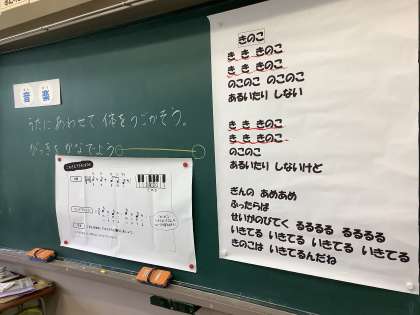 音楽
うたにあわせて 体をうごかそう。
がっきをかなでよう
きのこ
き き きのこ
き き きのこ
のこのこ のこのこ
あるいたり しない
き き きのこ
き き きのこ
のこのこ
あるいたり しないけど
ぎんの あめあめ
ふったらば
せいがのびてく るるるる るるるる
いきてる いきてる いきてる いきてる
きのこは いきてるんだね